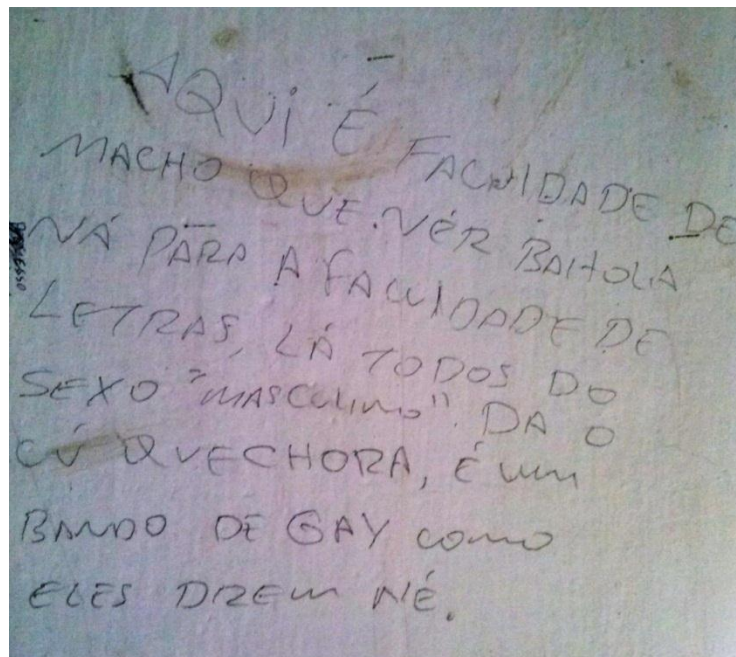 AQUI É FACUIDADE DE
MACHO QUE.VÉR BAITOLA
VÁ PÁRA A FACUIDADE DE
LETRAS, LÁ TODOS DO
SEXO "MASCULINO" DA O
CÚ QUECHORA, É UM
BANDO DE GAY COMO
ELES DIZEM NÉ.